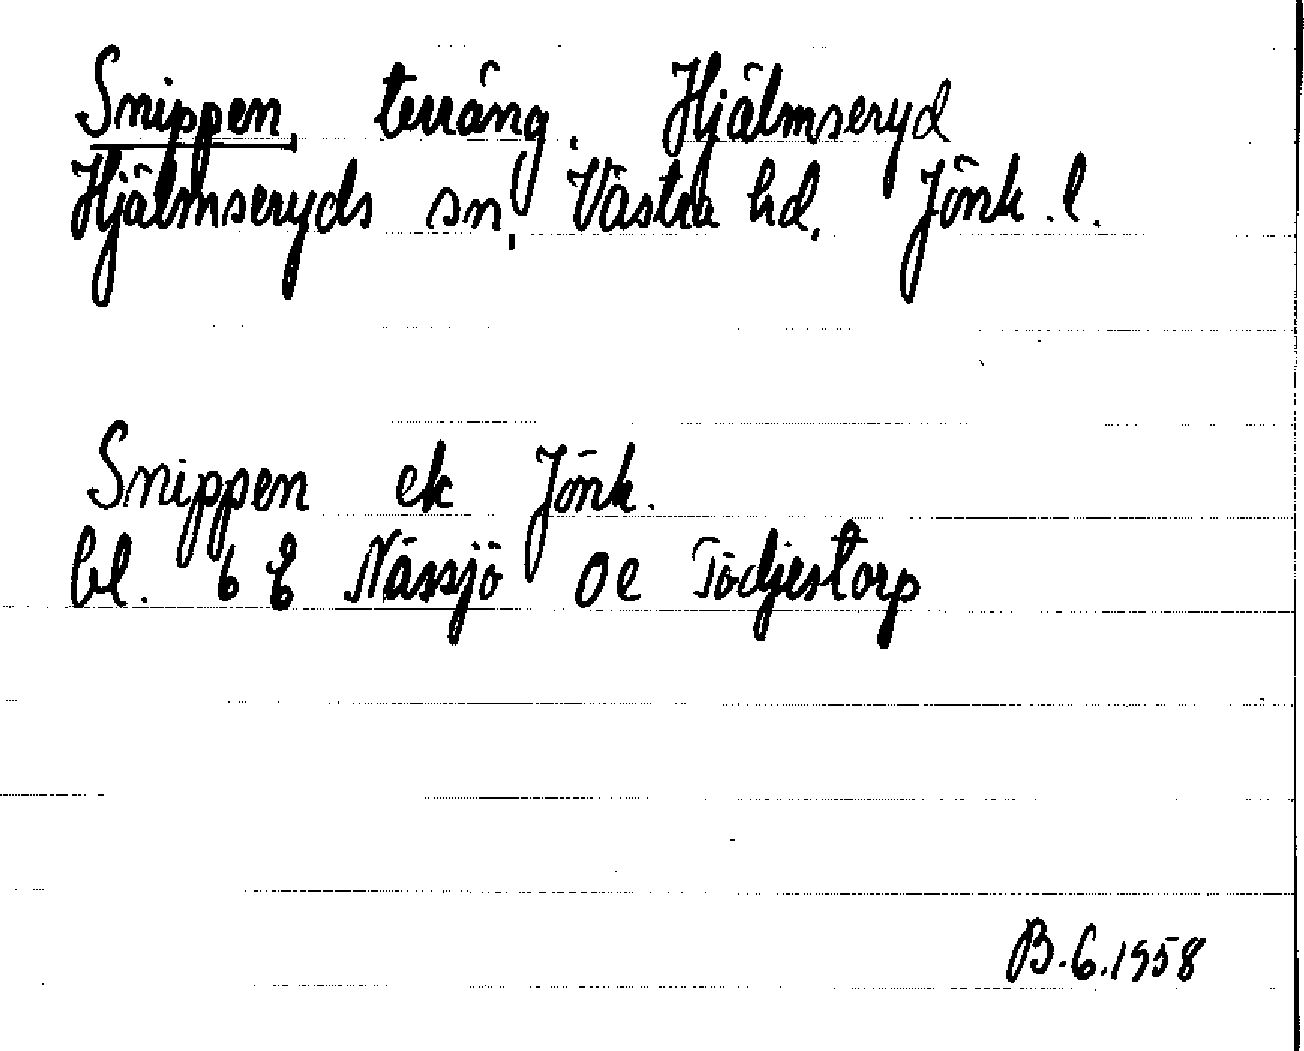 Snippen, terräng. Hjälmseryd
Hjälmseryds sn, Västra hd, Jönk. l.
Snippen ek Jönk.
bl. 6 E Nässjö 0e Tödjestorp
B.G.1958